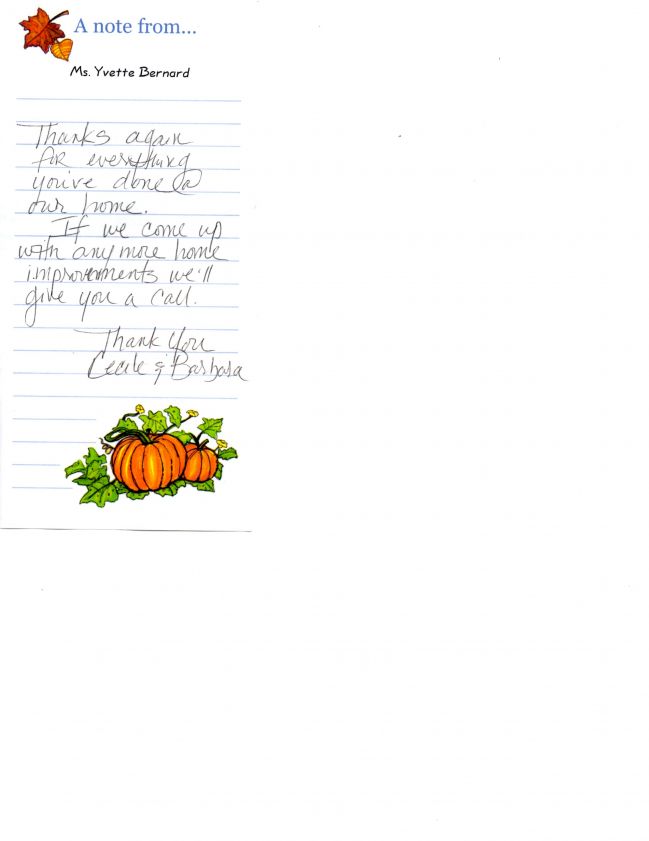 A note from...
Ms. Yvette Bernard
Thanks again
for everything
you've done @
our home.
If we come up
with any more home
improvements we'll
give you a call.
Thank You
Cecile & Barbara